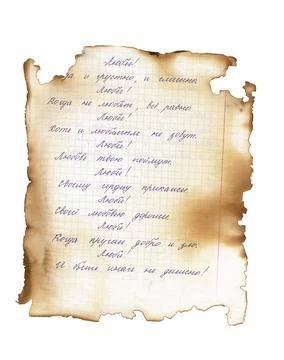 Люби!
и грустно, и
Люби!
Когда не любят, всё равно
Люби!
Хотя и любимым не зовут.
Люби!
Любовь твою поймут.
Люби!
Своему сердцу прикажи.
Люби!
Своей любовью дорожи.
Люби!
Когда кругом добро и зло.
Люби!
И быть иначе не дано!